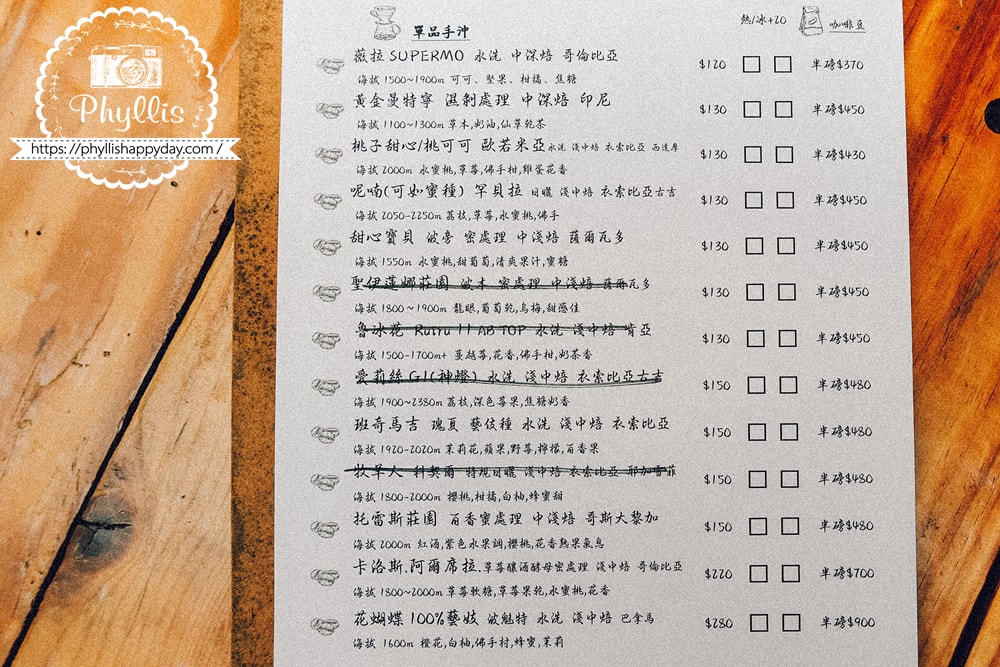 Phyllis
https://phyllishappyday.com/
單品手沖 熱/冰+20 咖啡豆
薇拉 SUPERMO 水洗 中深焙 哥倫比亞 $120 半磅$370
海拔 1500~1900m 可可、堅果、柑橘、焦糖
黃金曼特寧 濕剝處理 中深焙 印尼 $130 半磅$450
海拔 1100~1300m 草本,奶油,仙草乾茶
桃子甜心/桃可可 歐若米亞 水洗 淺中焙 衣索比亞 西達摩 $130 半磅$430
海拔 2000m 水蜜桃,草莓,佛手柑,雞蛋花香
呢喃(可如蜜種) 罕貝拉 日曬 淺中焙 衣索比亞古吉 $130 半磅$450
海拔 2050-2250m 荔枝,草莓,水蜜桃,佛手
甜心寶貝 波旁 蜜處理 中淺焙 薩爾瓦多 $130 半磅$450
海拔 1550m 水蜜桃,甜葡萄,清爽果汁,蜜糖
聖伊蓮娜莊園 波本 蜜處理 中淺焙 薩爾瓦多 $130 半磅$450
海拔 1800~1900m 龍眼,葡萄乾,烏梅,甜感佳
魯冰花 Ruiru 11 AB TOP 水洗 淺中焙 肯亞 $130 半磅$450
海拔 1500-1700m+ 蔓越莓,花香,佛手柑,奶茶香
愛莉絲 G1(神燈) 水洗 淺中焙 衣索比亞古吉 $150 半磅$480
海拔 1900~2380m 荔枝,深色莓果,焦糖奶香
班奇馬吉 瑰夏 藝伎種 水洗 淺中焙 衣索比亞 $150 半磅$480
海拔 1920-2020m 茉莉花,蘋果,野莓,檸檬,百香果
牧羊人 科契爾 特規日曬 淺中焙 衣索比亞 耶加雪菲 $150 半磅$480
海拔 1800-2000m 櫻桃,柑橘,白柚,蜂蜜甜
托雷斯莊園 百香蜜處理 中淺焙 哥斯大黎加 $150 半磅$480
海拔 2000m 紅酒,紫色水果調,櫻桃,花香熟果氣息
卡洛斯.阿爾席拉.草莓釀酒酵母蜜處理 淺中焙 哥倫比亞 $220 半磅$700
海拔 1800~2000m 草莓軟糖,草莓果乾,水蜜桃,花香
花蝴蝶 100%藝妓 波魁特 水洗 淺中焙 巴拿馬 $280 半磅$900
海拔 1600m 橙花,白柚,佛手村,蜂蜜,茉莉